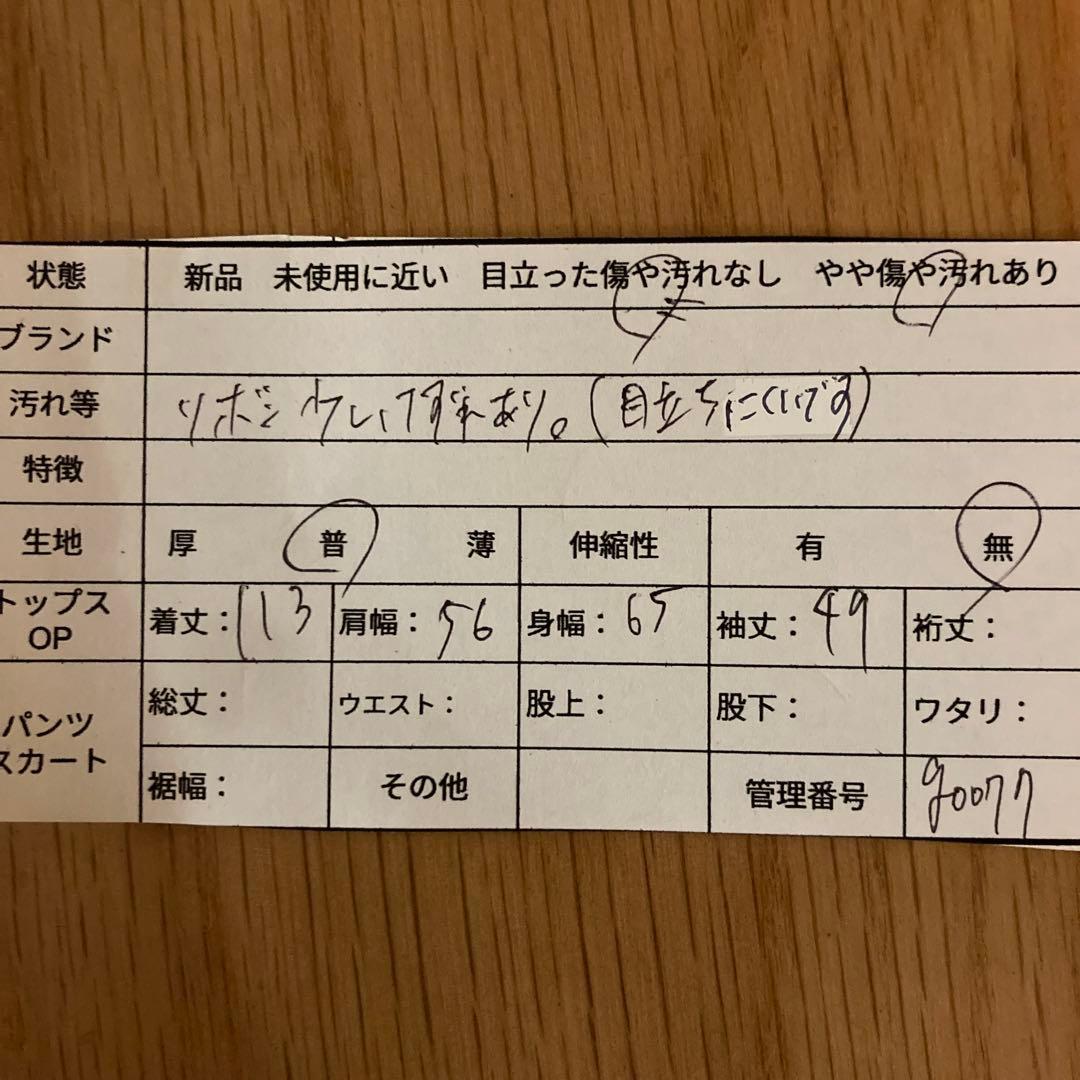 状態 新品 未使用に近い 目立った傷や汚れなし やや傷や汚れあり
ブランド
汚れ等 リボン すれあり。(目立ちにくいです)
特徴
生地 厚 普 薄 伸縮性 有 無
トップス OP 着丈:113 肩幅:56 身幅:65 袖丈:49 裄丈:
パンツ スカート 総丈: ウエスト: 股上: 股下: ワタリ:
裾幅: その他 管理番号 g0077